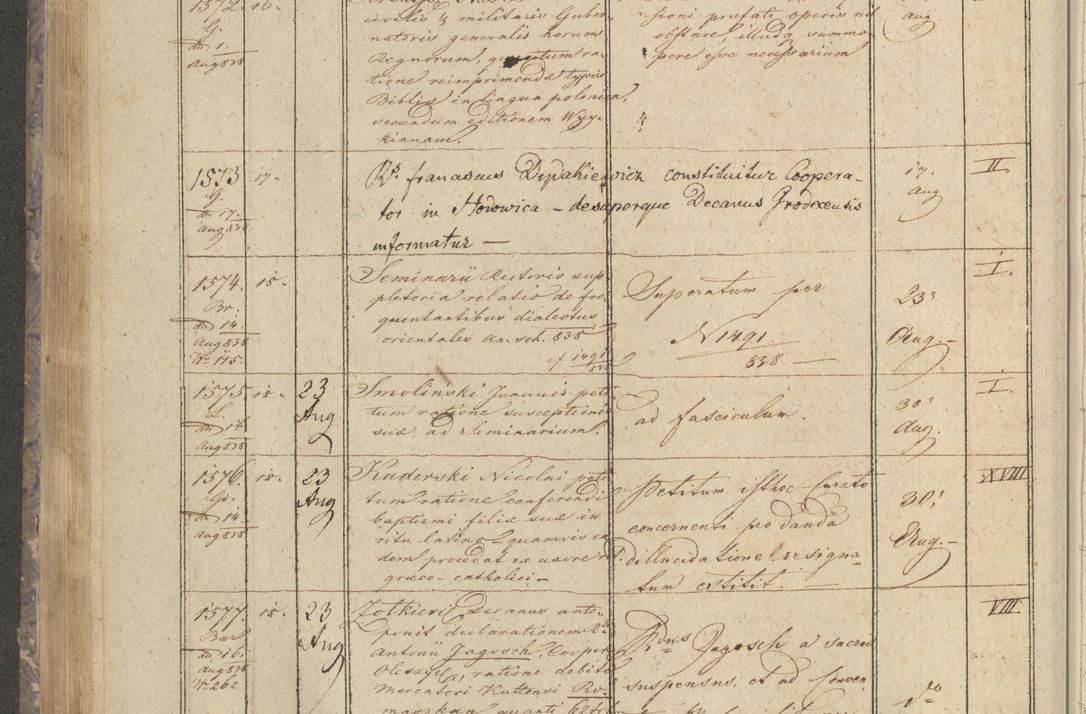 1572. 16.
G.
dd 1.
Aug 838
civilis & militaris Guber
natoris generalis horum
Regnorum, quæsitum ra-
tione reimprimendæ typis
Bibliæ in lingua polonica,
secundum editionem Wyy-
kianam.
sioni præfati operis nil
obstare, illudq summo-
pere esse necessariam
aug
1573 17.
G.
dd 17.
Aug 838.
Rds franciscus Depakiewicz constituitur Coopera-
tor in Hodowica – desuperque Decanus Grodecensis
informatur —
17.
Aug
II
1574. 18.
Br.
dd 14.
Aug 838
Nr 115.
Seminarii Rectoris sup
pletoria relatio de fre
quentantibus dialectos
orientales An. sch. 838
cf 1491/838
Superatum per
N 1491
838 —
23
Aug.–
I.
1575 18.
L.
dd 18.
Aug 838
23
Aug
Smolinski Joannis peti
tum ratione susceptionis
suæ ad Seminarium.
ad fasciculum.
30
Aug.
I.
1576. 18.
Gr.
dd 14.
Aug 838
23
Aug
Kuderski Nicolai peti
tum ratione conferendi
baptismi filiæ suæ in
ritu latino quamvis ea
dem procedat ex uxore rit.
græco-catholici –
Petitum isthoc Curato
concernenti pro danda
dillucidatione resigna-
tum extitit.
30
Aug.–
XVIII
1577. 18.
Bar
dd 16.
Aug 838
Nr 262
23
Aug
Zolkievie Decanus ante-
ponit declarationem Rdi
Antonii Jagosch, Cooper
ratione debiti
Mercatori Kuttensi Ro-
maszkan quanti
Jagosch a sacris
suspensus. et ad Conven
VIII.